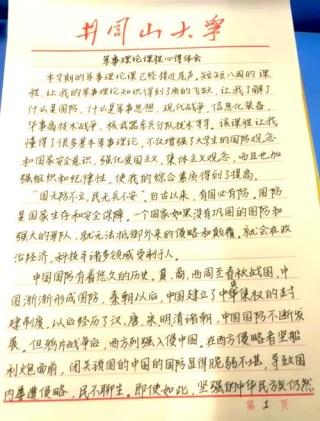 井冈山大学
军事理论课程心得体会
本学期的军事理论课已经接近尾声。短短八周的课
程,让我的军事理论知识得到了质的飞跃,让我了解了
什么是国防,什么是军事思想,现代战争,信息化装备,
毕事高技术战争,核武器与兵分队技术等等。该课程让我
懂得了很多基本军事理论,不仅增强了大学生的国防观念
和国家安全意识,强化爱国主义,集体主义观念,而且也加
强组织和纪律性,使我的综合素质得到了提高。
“国无防不立,民无兵不安”。自古以来,有国必有防。国防
是国家生存和安全保障。一个国家如果没有巩固的国防和
强大的军队,就无法抵御外来的侵略和颠覆。就会在政
治经济,科技等诸多领域受制于人。
中国国防有着悠久的历史。夏,商,西周至春秋战国,中
国渐渐形成国防。秦朝以后,中国建立了中央集权的封
建制度,以后经历了汉,唐,宋明清诸朝,中国国防不断发
展。但鸦片战争后,西方列强入侵中国,在西方侵略者坚船
利炮面前,闭关锁国的中国的国防显得脆弱不堪,导致国
内屡遭侵略,民不聊生。即使如此,坚强的中华民族仍然
第 1 页